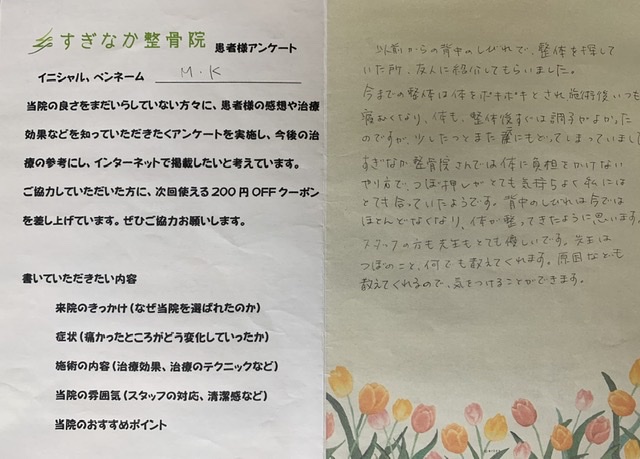 すぎなか整骨院 患者様アンケート
イニシャル、ペンネーム M.K
当院の良さをまだいらしていない方々に、患者様の感想や治療
効果などを知っていただきたくアンケートを実施し、今後の治
療の参考にし、インターネットで掲載したいと考えています。
ご協力していただいた方に、次回使える200円OFFクーポン
を差し上げています。ぜひご協力お願いします。
書いていただきたい内容
来院のきっかけ(なぜ当院を選ばれたのか)
症状(痛かったところがどう変化していったか)
施術の内容(治療効果、治療のテクニックなど)
当院の雰囲気(スタッフの対応、清潔感など)
当院のおすすめポイント
以前からの背中のしびれで、整体を探して
いた所、友人に紹介してもらいました。
今までの整体は体をボキボキとされ施術後いつも
眠くなり、体も、整体後すぐは調子がよかった
のですが、少したつとまた元にもどってしまっていました
すぎなか整骨院さんでは体に負担をかけない
やり方で、つぼ押しがとても気持ちよく私には
とても合っていたようです。背中のしびれは今では
ほとんどなくなり、体が整ってきたように思います。
スタッフの方も先生もとても優しいです。先生は
つぼのこと、何でも教えてくれます。原因なども
教えてくれるので、気をつけることができます。